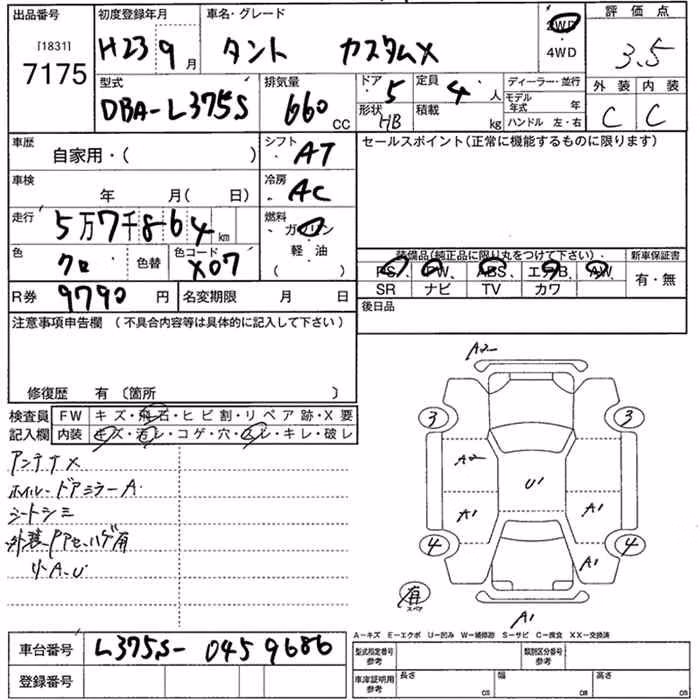 出品番号 初度登録年月 車名・グレード 2WD 評価点
[1831] 7175 H23 9月 タント カスタムX 4WD 3.5
型式 排気量 ドア 5 定員 4人 ディーラー・並行 外装 内装
DBA-L375S 660 CC 形状 HB 積載 kg モデル年式 年 C C
ハンドル 左・右
車歴 自家用・( ) シフト AT セールスポイント(正常に機能するものに限ります)
車検 年 月( 日) 冷房 AC
走行 5万7千864km 燃料 ガソリン
軽・油
( )
色 クロ 色替 色コード X07 装備品(純正品に限り丸をつけて下さい) 新車保証書
PS、 PW、 ABS、 エアB、 AW、 有・無
SR ナビ TV カワ
R券 9790円 名変期限 月 日 後日品
注意事項申告欄(不具合内容等は具体的に記入して下さい)
修復歴 有〔箇所 〕
検査員 FW キズ・飛石・ヒビ割・リペア跡・X要
記入欄 内装 キズ・汚レ・コゲ・穴・スレ・キレ・破レ
アンテナX
ホイル・ドアミラーA
シートシミ
外装・ハゲ有
小A・U
A2
3 3
A2
U1
A1 A1
4 4
A1
有
スペア
A1
A-キズ E-エクボ U-凹み W-補修跡 S-サビ C-腐食 XX-交換済
車台番号 L375S-0459686 型式指定番号 参考 類別区分番号 参考
登録番号 車庫証明用 参考 長さ cm 幅 cm 高さ cm